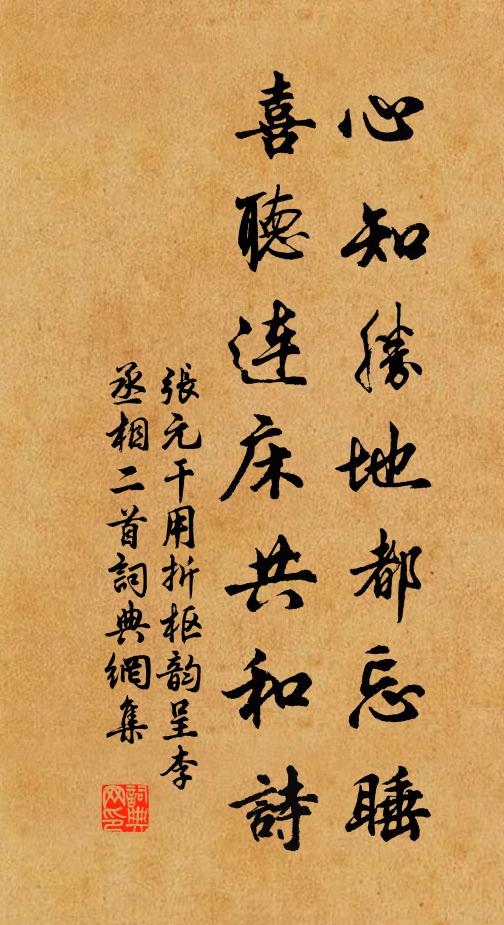 心知勝地都忘睡
喜聽連床共和詩
張元干用折枢韵呈李
丞相二首詞典網集
詞典
网印